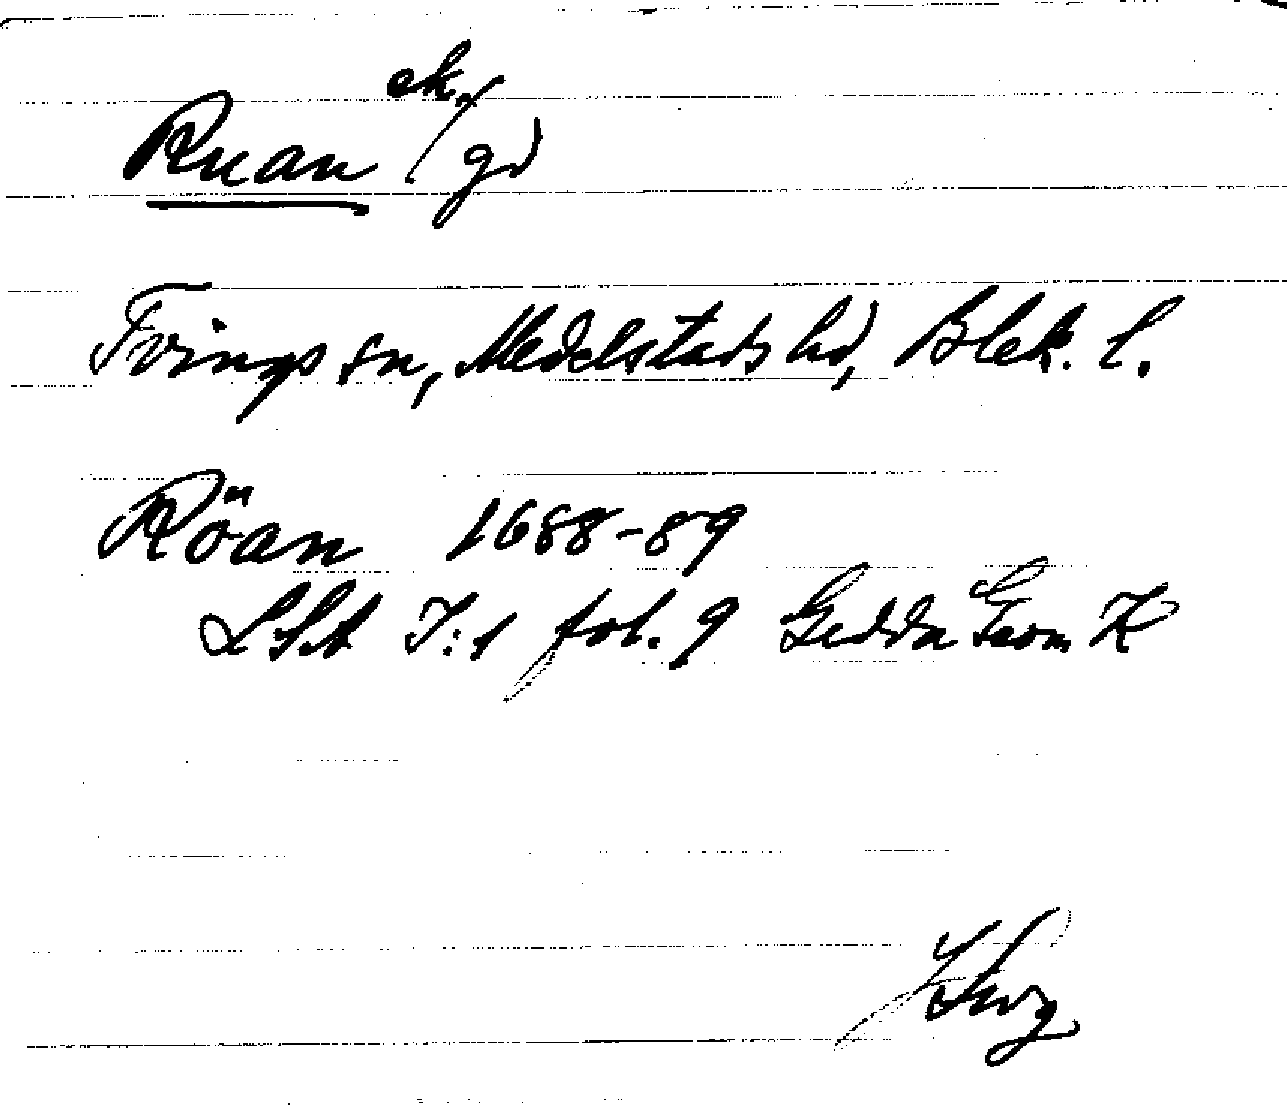 Ruan ek./gd
Tvings sn, Medelstads hd, Blek. l.
Röan 1688-89
LSA I:1 fol. 9 Gedda Geom K